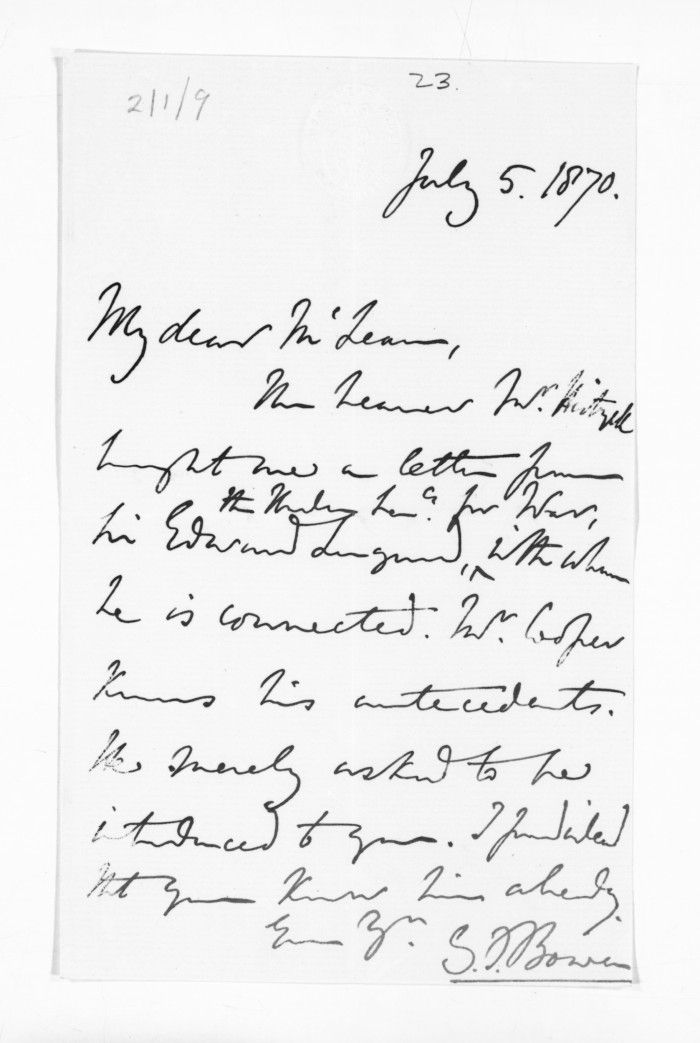 2/1/9
23.
July 5. 1870.
My dear McLean,
The bearer Mr.
brought me a letter from
the Under Sec. for War,
Sir Edward Lugard, with whom
he is connected. Mr. Cooper
knows his antecedents.
He merely asked to be
introduced to you. I find indeed
that you know him already.
G. F. Bowen